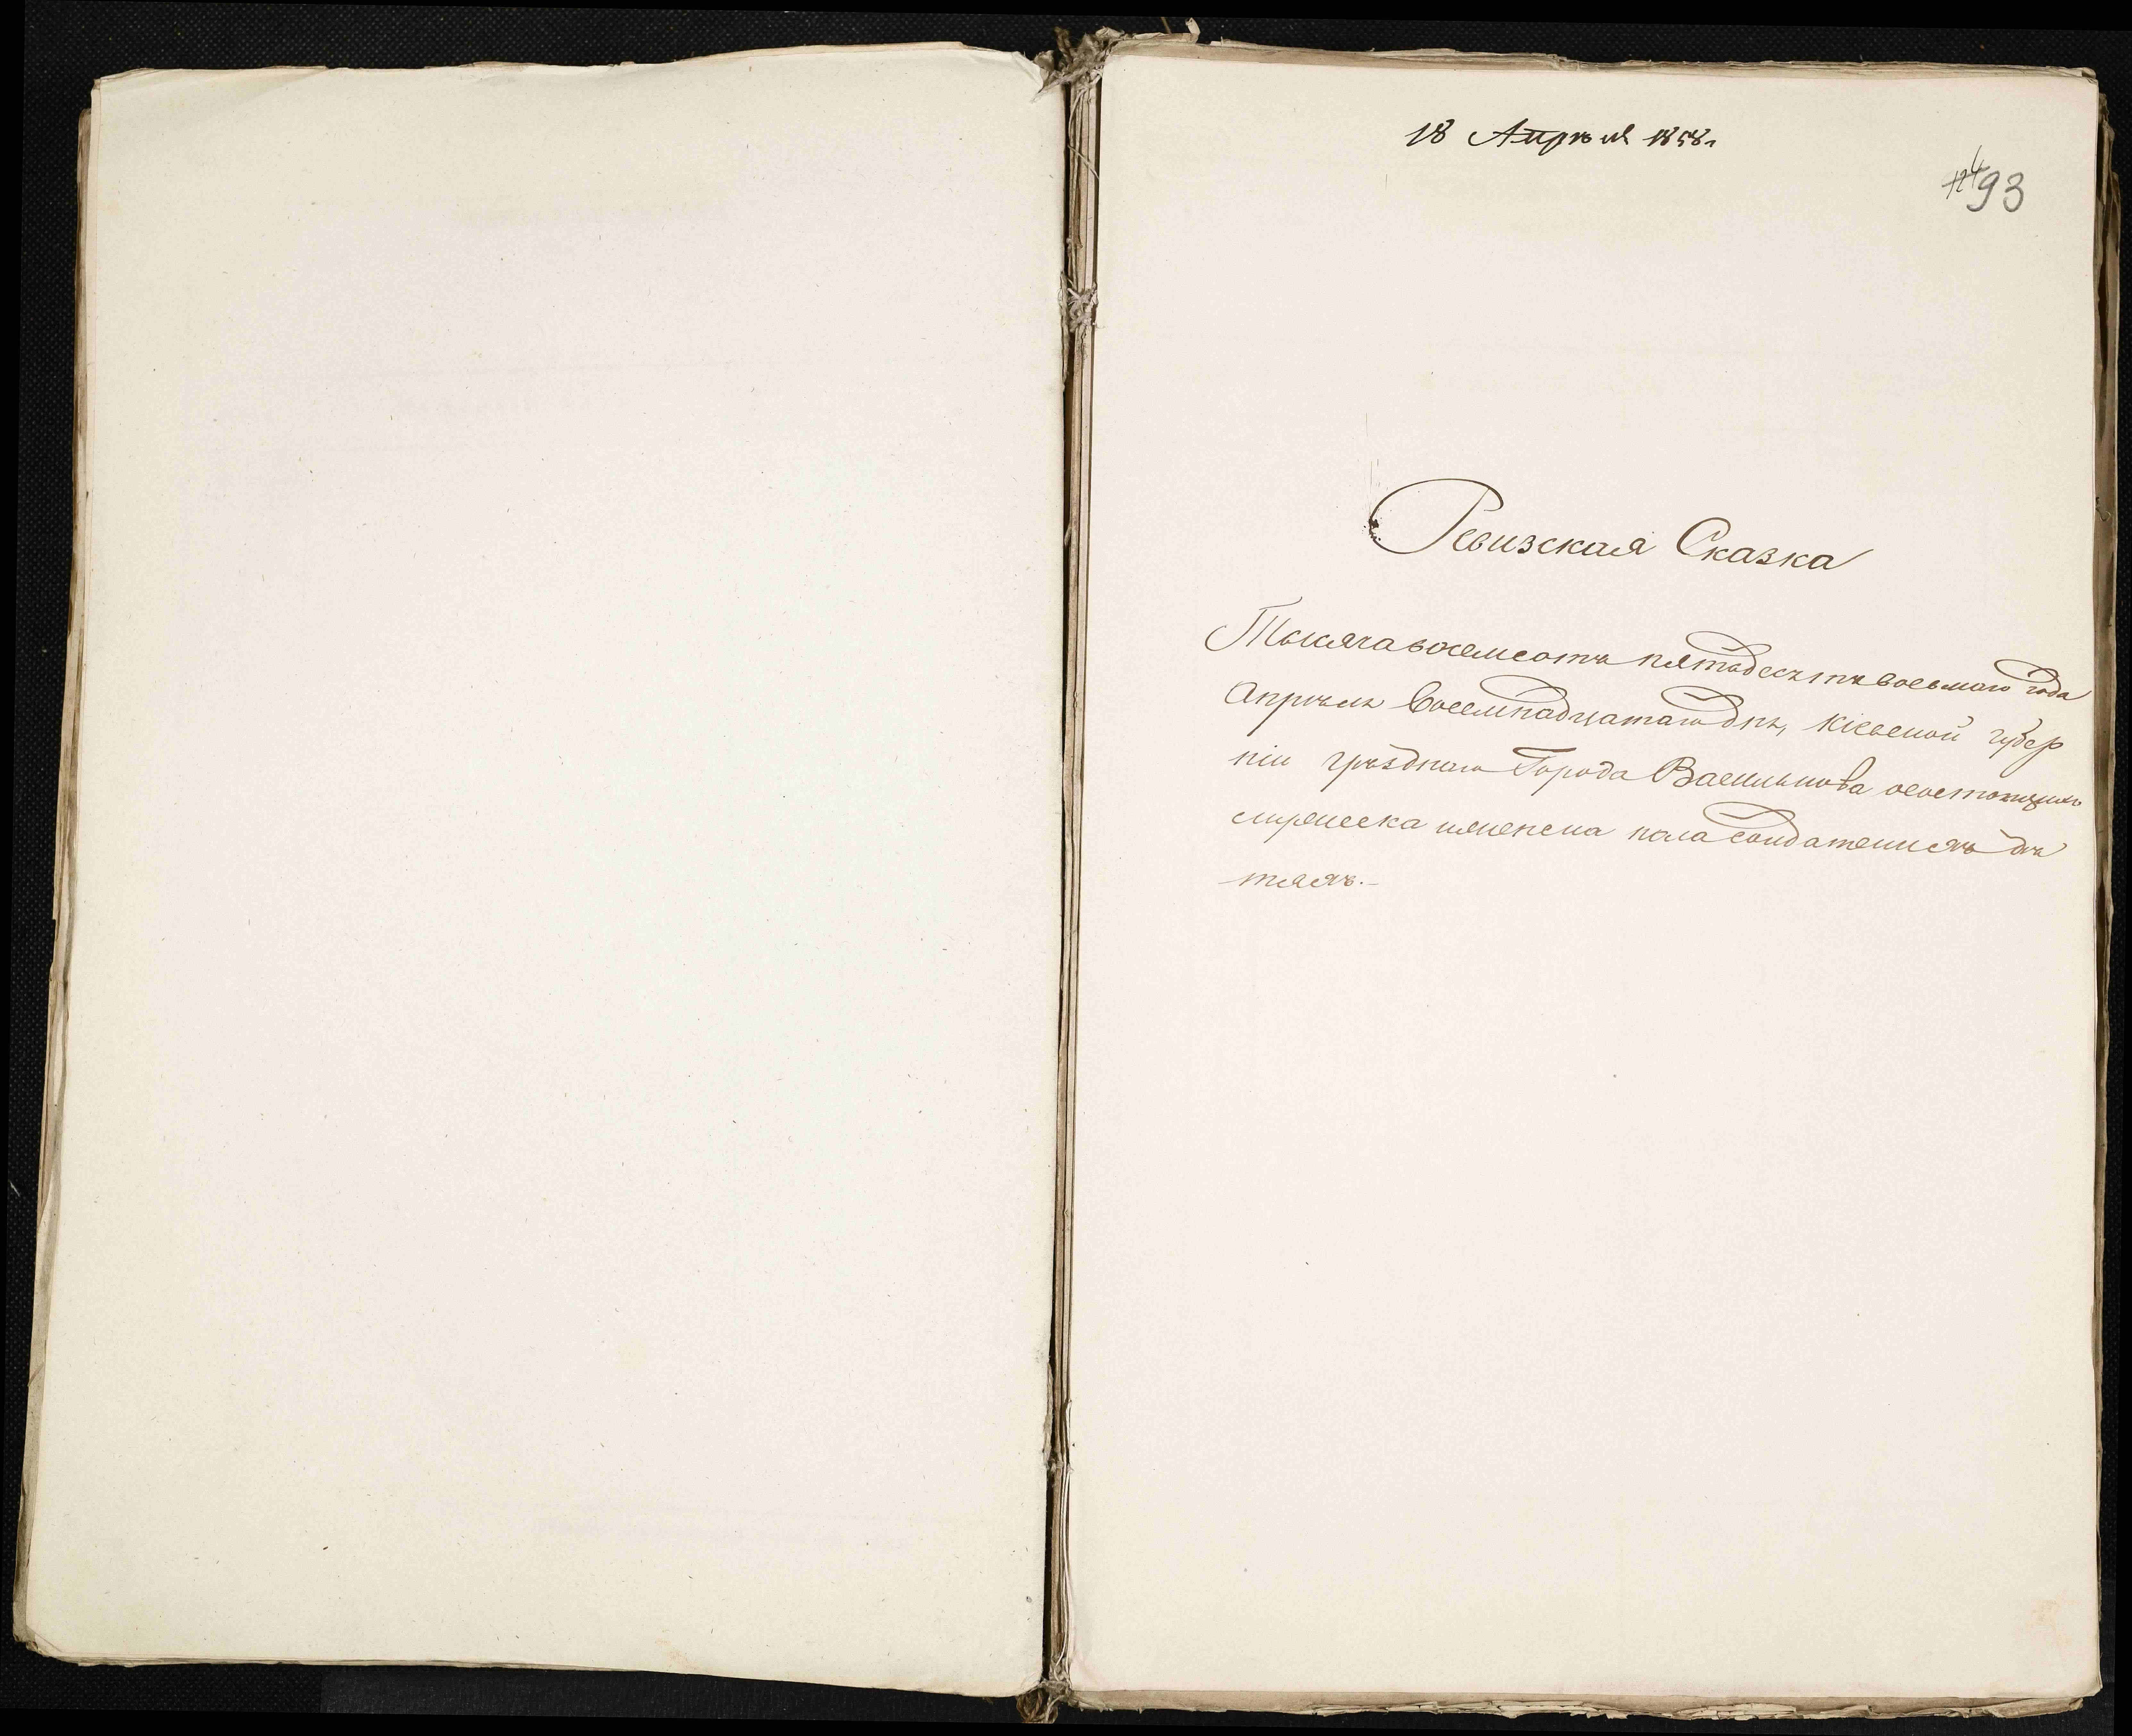 18 Апрѣля 1858 г
124 93
Ревизская Сказка
Тысяча восемсотъ пятьдесятъ восьмаго года
Апрѣля Восемнадцатаго дня, Кіевской губер
ніи уѣзднаго Города Василькова о состоящихъ
женска пола солдатскихъ дѣ
тяхъ.-